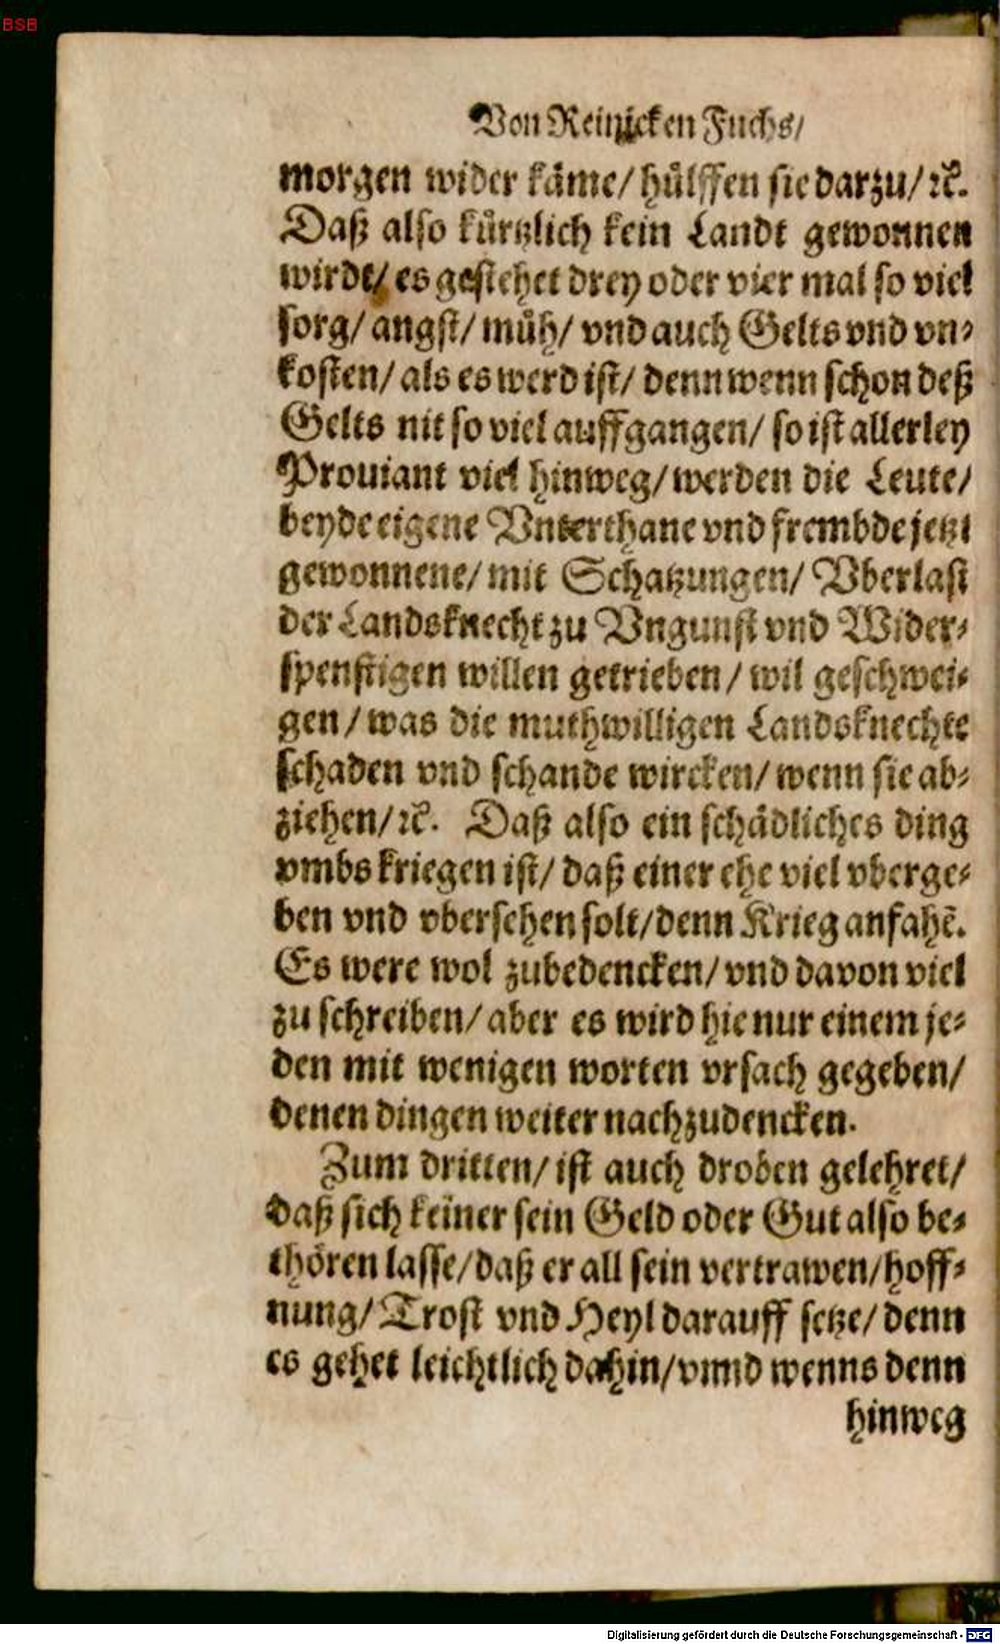 BSB
Von Reinicken Fuchs/
morgen wider käme/ hülffen sie darzu/ ꝛc̃.
Daß also kürtzlich kein Landt gewonnen
wirdt/ es gestehet drey oder vier mal so viel
sorg/ angst/ müh/ vnd auch Gelts vnd vn⸗
kosten/ als es werd ist/ denn wenn schon deß
Gelts nit so viel auffgangen/ so ist allerley
Prouiant viel hinweg/ werden die Leute/
beyde eigene Vnterthane vnd frembde jetzt
gewonnene/ mit Schatzungen/ Vberlast
der Landsknecht zu Vngunst vnd Wider⸗
spenstigen willen getrieben/ wil geschwei⸗
gen/ was die muthwilligen Landsknechte
schaden vnd schande wircken/ wenn sie ab⸗
ziehen/ ꝛc̃. Daß also ein schädliches ding
vmbs kriegen ist/ daß einer ehe viel vberge⸗
ben vnd vbersehen solt/ denn Krieg anfahẽ.
Es were wol zubedencken/ vnd davon viel
zu schreiben/ aber es wird hie nur einem je⸗
den mit wenigen worten vrsach gegeben/
denen dingen weiter nachzudencken.
Zum dritten/ ist auch droben gelehret/
daß sich keiner sein Geld oder Gut also be⸗
thören lasse/ daß er all sein vertrawen/ hoff⸗
nung/ Trost vnd Heyl darauff setze/ denn
es gehet leichtlich dahin/ vnnd wenns denn
hinweg
Digitalisierung gefördert durch die Deutsche Forschungsgemeinschaft - DFG